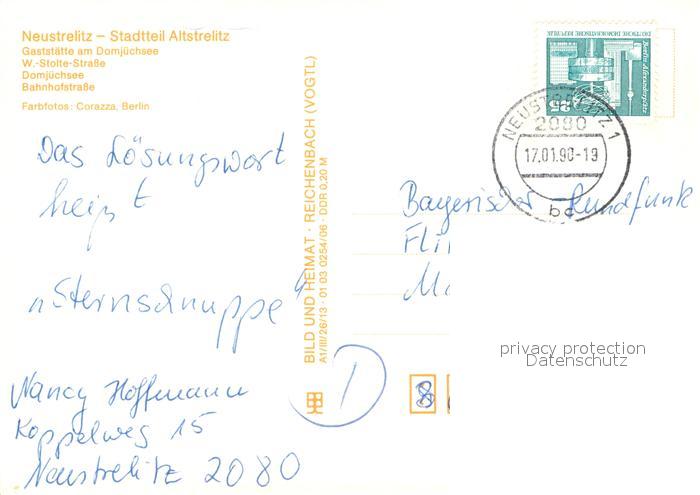 Neustrelitz – Stadtteil Altstrelitz
Gaststätte am Domjüchsee
W.-Stolte-Straße
Domjüchsee
Bahnhofstraße
Farbfotos: Corazza, Berlin
Das Lösungswort
heißt
„Sternschnuppe“
Nancy Hoffmann
Koppelweg 15
Neustrelitz 2080
BILD UND HEIMAT · REICHENBACH (VOGTL)
A1/III/26/13 · 01 03 0254/06 · DDR 0,20 M
Berlin, Alexanderplatz
DEUTSCHE DEMOKRATISCHE REPUBLIK
25
NEUSTRELITZ 1
2080
17.01.90-19
bc
Bayerischer Rundfunk
8
privacy protection
Datenschutz